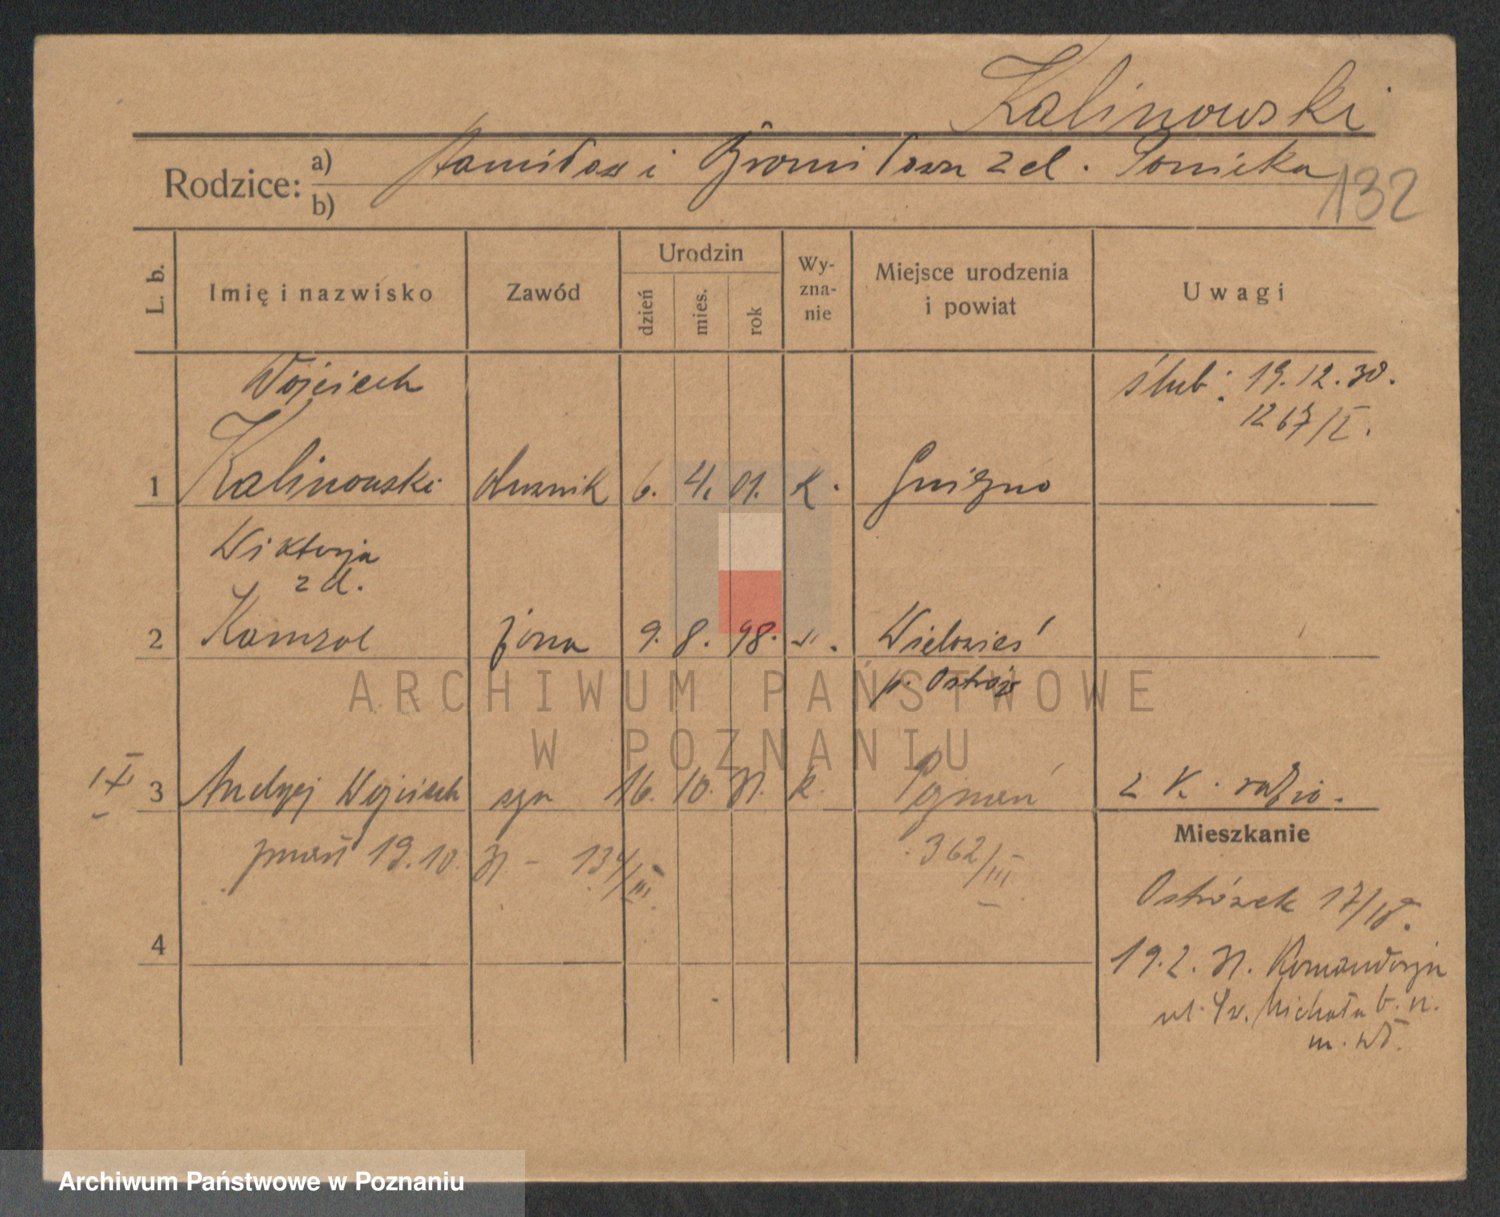 Kalinowski
Rodzice: a) Stanisław i Bronisława z d. Ponicka
b)
132
L. b.
Imię i nazwisko
Zawód
Urodzin
dzień
mies.
rok
Wy-
zna-
nie
Miejsce urodzenia
i powiat
Uwagi
Wojciech
ślub: 19.12.30.
1267/I.
1 Kalinowski ślusarnik 6. 4. 01. k. Gniezno
Wiktorja
z d.
2 Kamzol żona 9. 8. 98. " . Wielowieś
p. Ostrów
3 Andrzej Wojciech syn 16. 10. 31. k. Poznań z K. radzio.
Poznań 19.10. 31 - 134/III. 362/III
Mieszkanie
Ostrówek 17/18.
4
19.2.31. Komandorja
ul. Św. Michała b. n.
m. wł.
ARCHIWUM PAŃSTWOWE
W POZNANIU
Archiwum Państwowe w Poznaniu